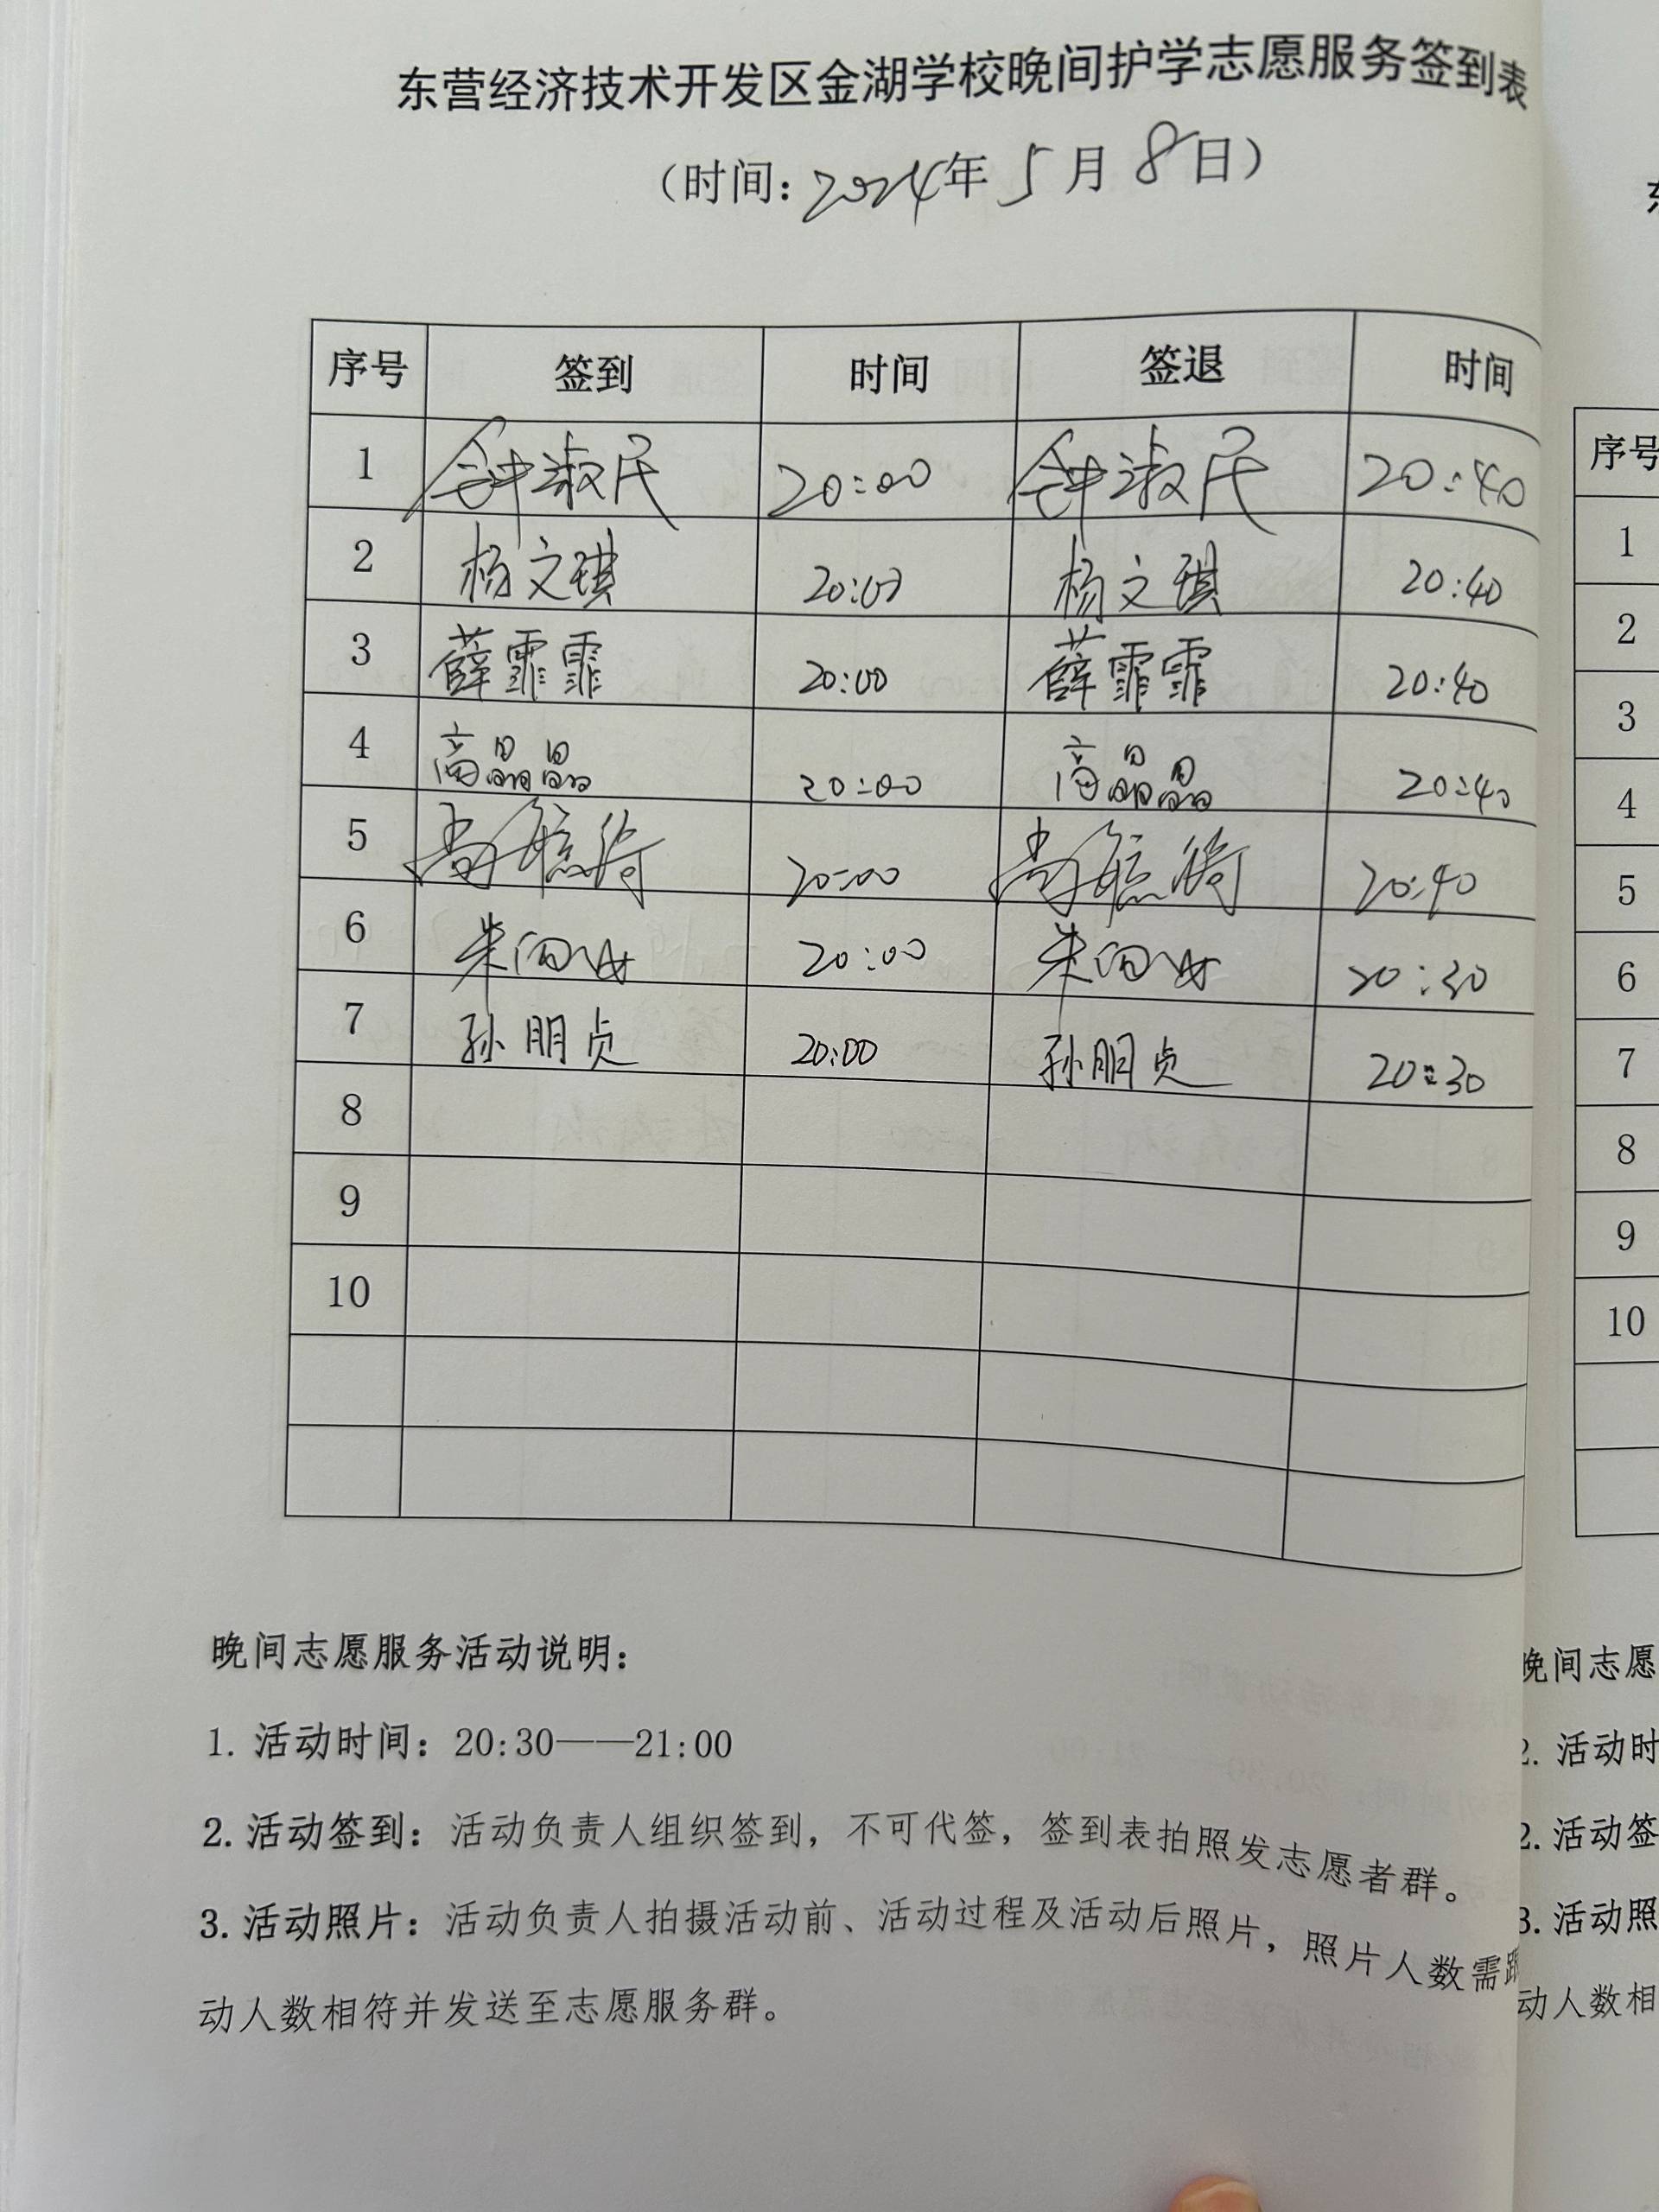 东营经济技术开发区金湖学校晚间护学志愿服务签到表
（时间：2024年5月8日）
序号 签到 时间 签退 时间
1 钟淑民 20:00 钟淑民 20:40
2 杨文琪 20:00 杨文琪 20:40
3 薛霏霏 20:00 薛霏霏 20:40
4 高晶晶 20:00 高晶晶 20:40
5 尚 20:00 尚 20:40
6 朱 20:00 朱 20:30
7 孙朋贞 20:00 孙朋贞 20:30
8
9
10
晚间志愿服务活动说明：
1. 活动时间：20:30——21:00
2. 活动签到：活动负责人组织签到，不可代签，签到表拍照发志愿者群。
3. 活动照片：活动负责人拍摄活动前、活动过程及活动后照片，照片人数需
动人数相符并发送至志愿服务群。
序号
1
2
3
4
5
6
7
8
9
10
晚间志愿
2. 活动时
2. 活动签
3. 活动照
动人数相